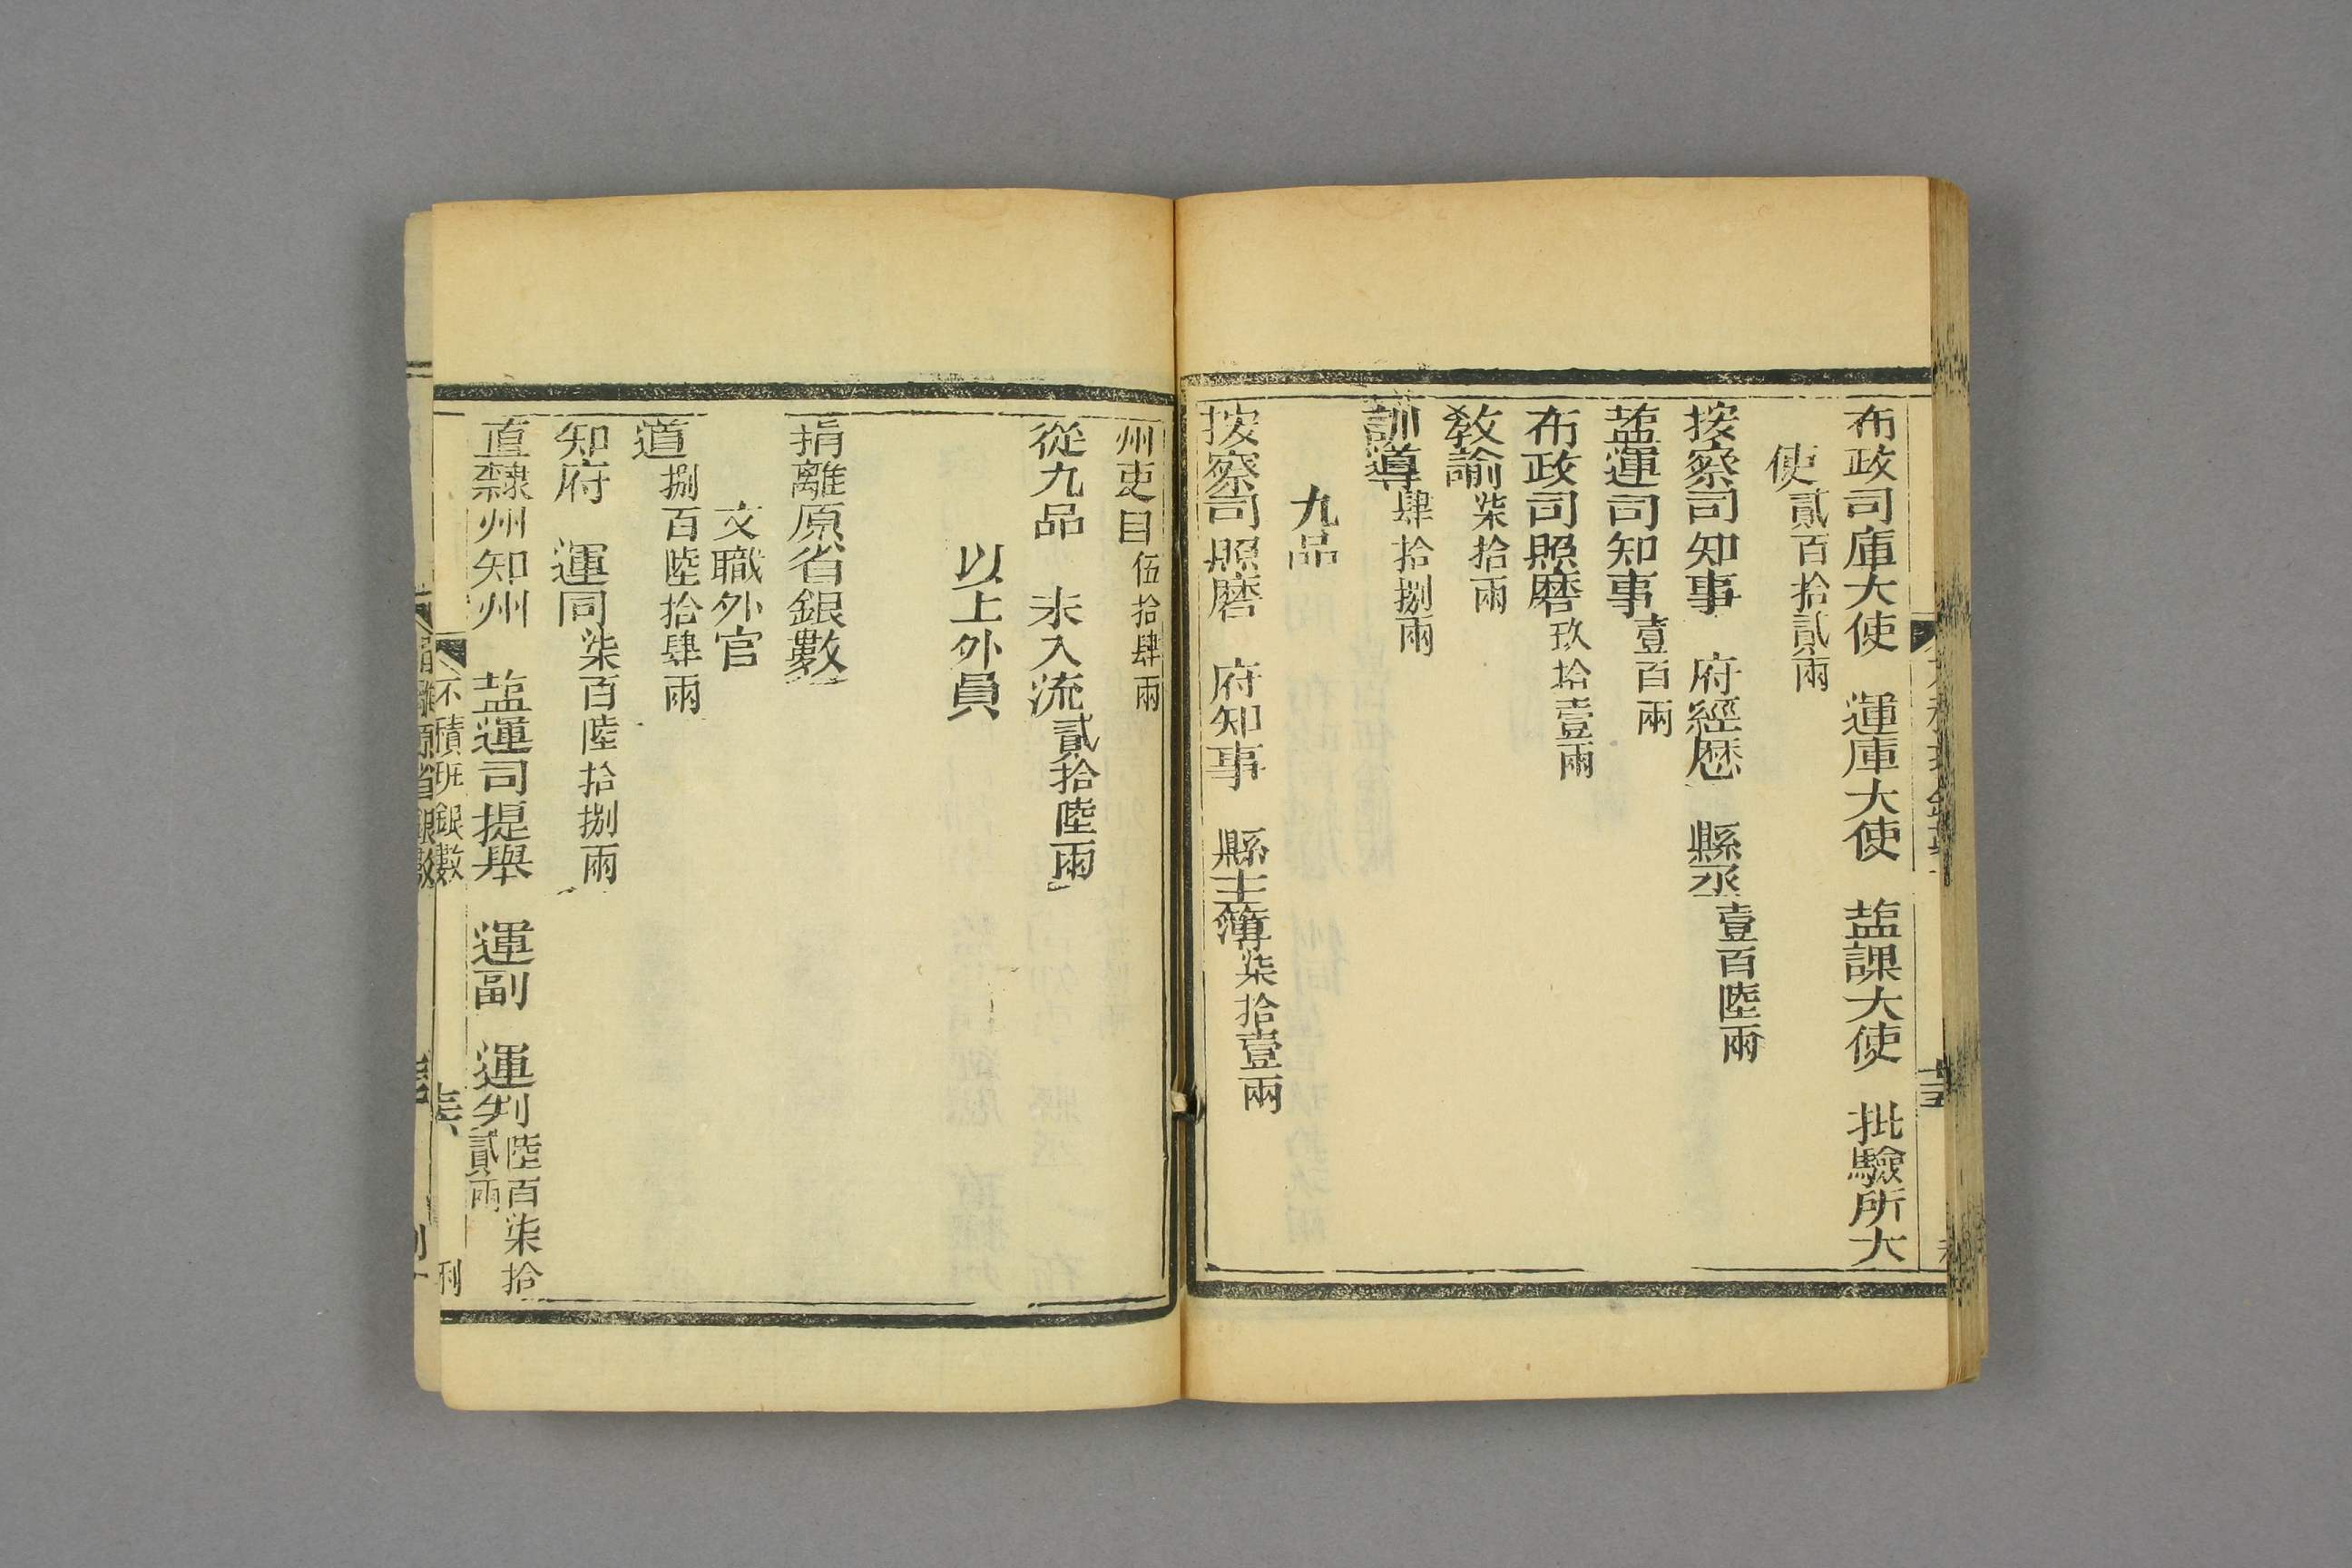 布政司庫大使　運庫大使　盐課大使　批驗所大
使貳百拾貳兩
按察司知事　府經歷　縣丞壹百陸兩
盐運司知事壹百兩
布政司照磨玖拾壹兩
教諭柒拾兩
訓導肆拾捌兩
九品
按察司照磨　府知事　縣主簿柒拾壹兩
州吏目伍拾肆兩
從九品　未入流貳拾陸兩
以上外員
捐離原省銀數
文職外官
道捌百陸拾肆兩
知府　運同柒百陸拾捌兩
直隸州知州　盐運司提舉　運副　運判陸百柒拾貳兩
不積班銀數
捐離原省銀數